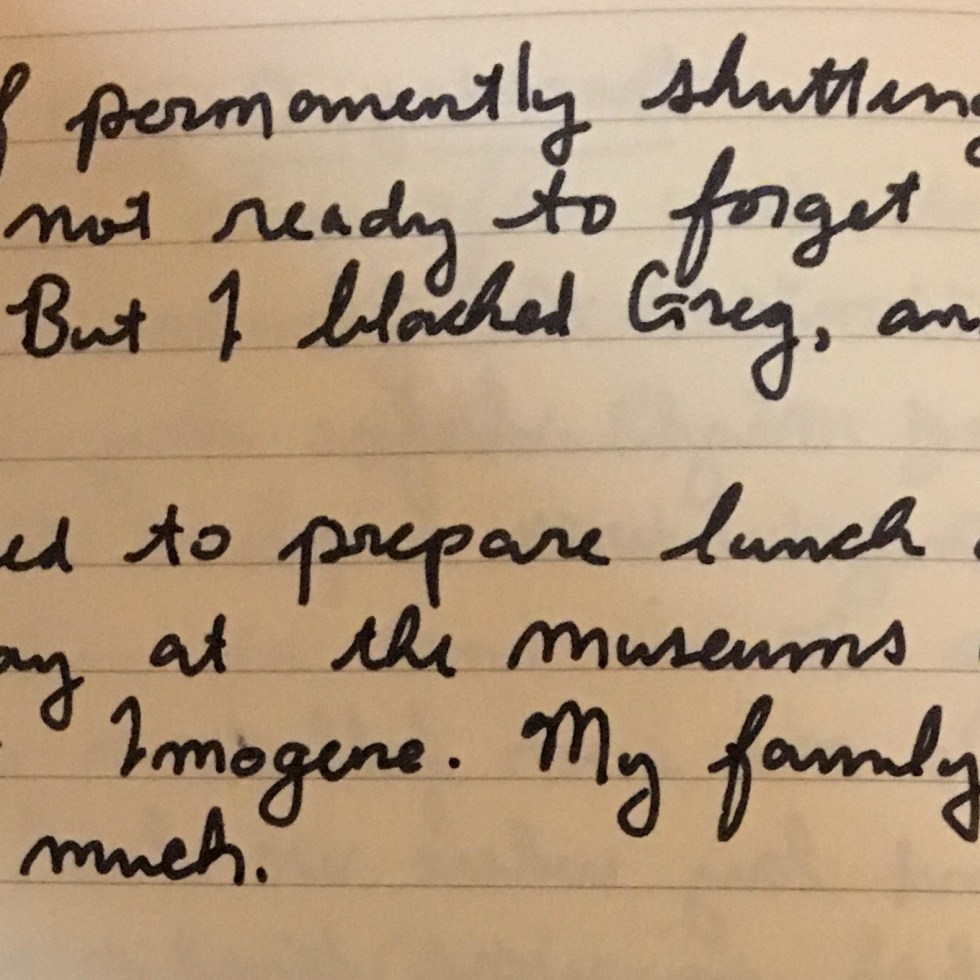 f permanently shutting
not ready to forget
But I blocked Greg, an
ed to prepare lunch
ay at the museums
Imogene. My family
much.